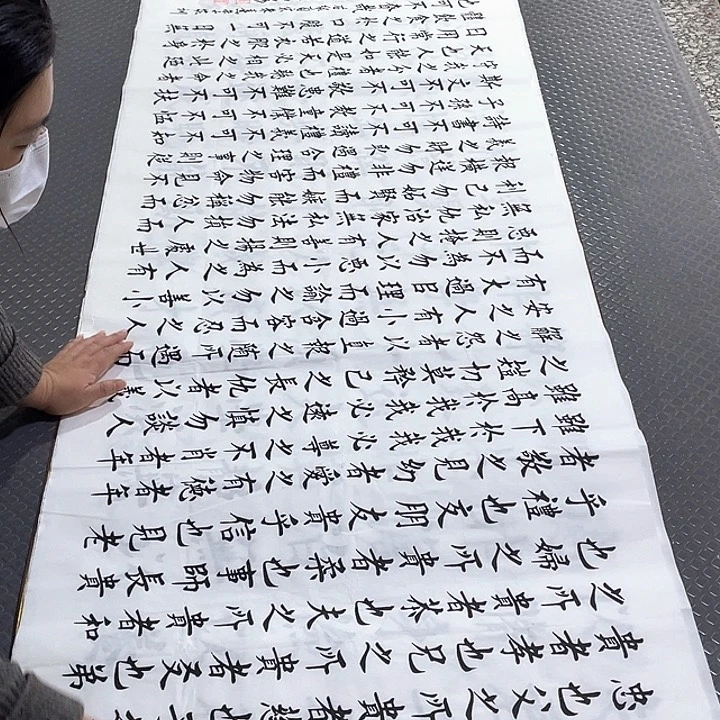 忠也父之所貴者慈也子之
貴者孝也兄之所貴者友也弟
之所貴者恭也夫之所貴者和
也婦之所貴者柔也事師長貴
乎禮也交朋友貴乎信也見老
者敬之見幼者愛之有德者年
雖下於我我必尊之不肖者年
雖高於我我必遠之慎勿談人
之短切莫矜己之長仇者以義
解之怨者以直報之隨所遇而
安之人有小過含容而忍之人
有大過以理而諭之勿以善小
而不為勿以惡小而為之人有
惡則掩之人有善則揚之處世
無私仇治家無私法勿損人而
利己勿妒賢而嫉能勿稱忿而
報橫逆勿非禮而害物命見不
義之財勿取遇合理之事則從
詩書不可不讀禮義不可不知
子孫不可不教童僕不可不恤
斯文不可不敬患難不可不扶
守我之分者禮也聽我之命者
天也人能如是天必相之此乃
日用常行之道若衣服之於身
體飲食之於口腹不可一日無
也可不慎哉